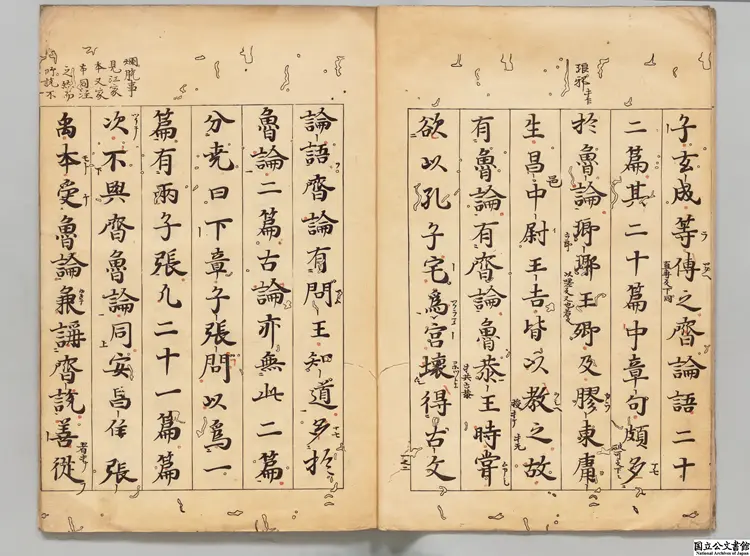 子玄成等傳之齊論語二十
二篇其二十篇中章句頗多
於魯論瑯瑘王卿及膠東庸
生昌邑中尉王吉皆以教之故
有魯論有齊論魯恭王時甞
欲以孔子宅爲宮壞得古文
論語齊論有問王知道多於
魯論二篇古論亦無此二篇
分堯曰下章子張問以爲一
篇有兩子張凡二十一篇篇
次不與齊魯論同安昌侯張
禹本受魯論兼講齊說善從
爛脱事
見江家
国立公文書館
National Archives of Japan